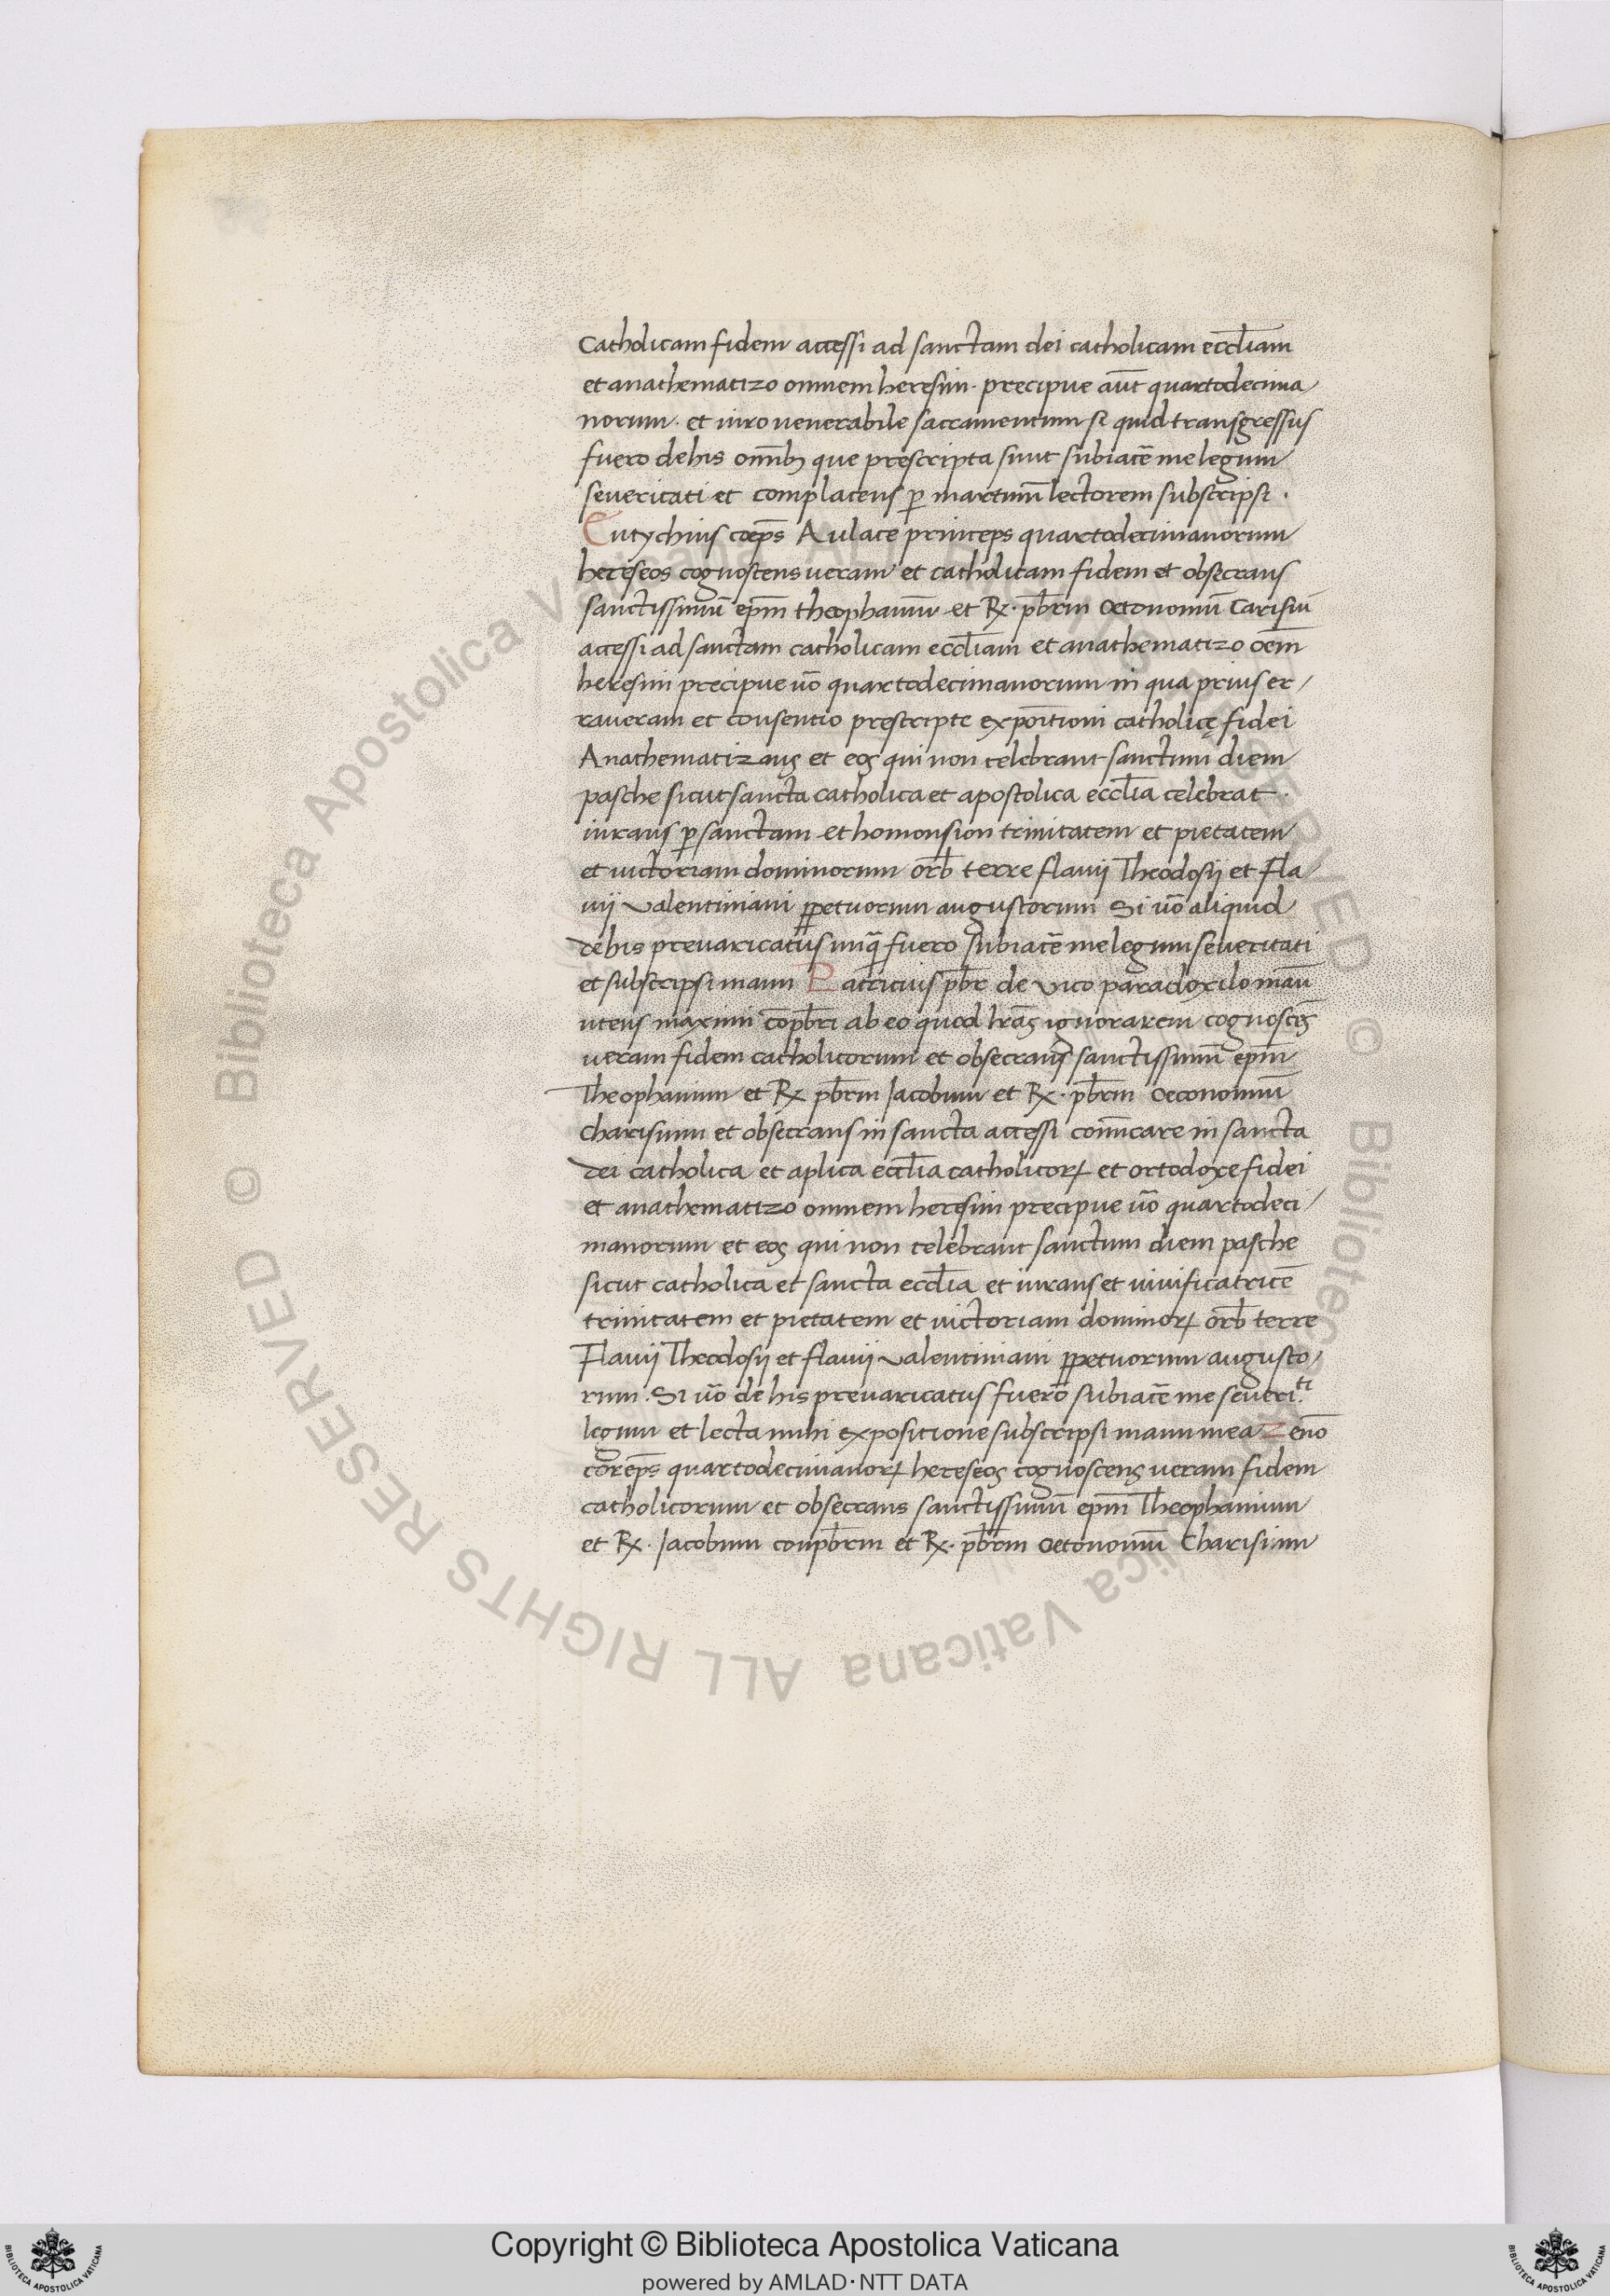 Catholicam fidem accessi ad sanctam dei catholicam eccl̄iam
et anathematizo omnem heresim. precipue aūt quartodecima/
norum. et iuro venerabile sacramentum si quid transgressus
fuero de his om̄ībꝫ que prescripta sunt subiacē me legum
severitati et complacens p̱ martinū lectorem subscripsi.
Eutychius coep̄s Aulace princeps quartodecimanorum
hereseos cognoscens veram et catholicam fidem et obsecrans
sanctissimū ep̄m theophaniū et R̸. pb̄rm Oeconomū Carisiū
accessi ad sanctam catholicam eccl̄iam et anathematizo oēm
heresim precipue ūo quartodecimanorum in qua prius er/
raveram et consentio prescripte expoītioni catholicę fidei
Anathematizans et eos qui non celebrant sanctum diem
pasche sicut sancta catholica et apostolica eccl̄ia celebrat.
iurans p̱ sanctam et homousion trinitatem et pietatem
et victoriam dominorum orb̄ terre flavij Theodosij et Fla/
vij Valentiniani p̱petuorum augustorum Si ūo aliquid
de his prevaricatus unq̄ fuero subiacē me legum severitati
et subscripsi manu Patricius pb̄r de Vico paradoxilo manū
utens maximi cōpb̄ri ab eo quod lrās ignorarem cognoscēs
veram fidem catholicorum et obsecrans sanctissimū ep̄m
Theophanium et R̸ pb̄rm Jacobum et R̸. pb̄rm Oeconomū
Charisium et obsecrans in sancta accessi com̄icare in sancta
dei catholica et aplica eccl̄ia catholicoꝝ et ortodoxe fidei
et anathematizo omnem heresim precipue ūo quartodeci/
manorum et eos qui non celebrant sanctum diem pasche
sicut catholica et sancta eccl̄ia et iurans et vivificatricē
trinitatem et pietatem et victoriam dominoꝝ orb̄ terre
Flavij Theodosij et flavij Valentiniani p̱petuorum augusto/
rum. Si ūo de his prevaricatus fuero subiacē me severiᵗⁱ.
legum et lecta mihi expositione subscripsi manu mea Zeno
corep̄s quartodecimanoꝝ hereseos cognoscens veram fidem
catholicorum et obsecrans sanctissimū ep̄m Theophanium
et R̸. Jacobum conpb̄rm et R̸. pb̄rm Oeconomū Charisium
© Biblioteca Apostolica Vaticana ALL RIGHTS RESERVED © Biblioteca Apostolica Vaticana ALL RIGHTS RESERVED
Copyright © Biblioteca Apostolica Vaticana
powered by AMLAD·NTT DATA
BIBLIOTECA APOSTOLICA VATICANA
BIBLIOTECA APOSTOLICA VATICANA